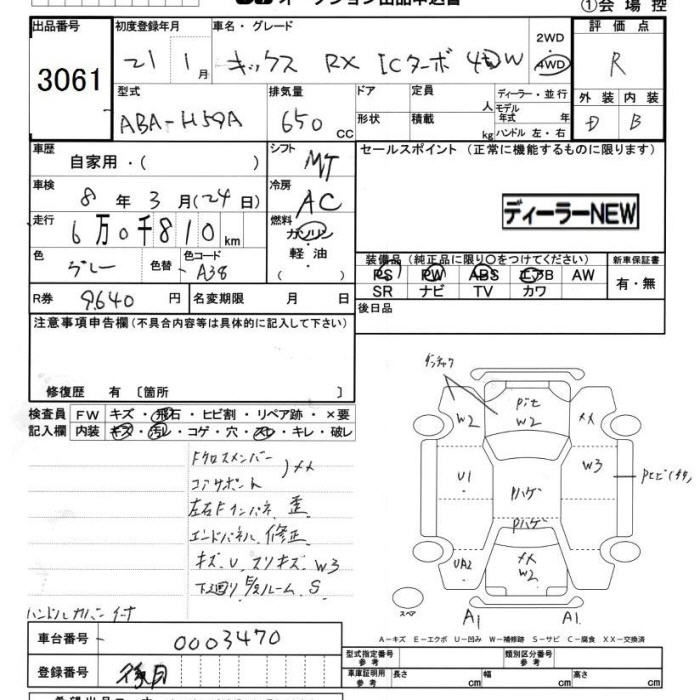 ①会場控
出品番号
3061
初度登録年月
21 1月
車名・グレード
キックス RX ICターボ 4 W
2WD
・
4WD
評価点
R
型式
ABA-H59A
排気量
650 CC
ドア
形状
定員 人
積載 kg
ディーラー・並行
モデル年式 年
ハンドル 左・右
外装 内装
D B
車歴
自家用・( )
シフト
MT
セールスポイント (正常に機能するものに限ります)
車検
8年 3月 (24日)
冷房
AC
ディーラーNEW
走行
6万0千810km
燃料
ガソリン
軽・油
( )
色
グレー
色替
色コード
A38
装備品(純正品に限り○をつけてください)
PS PW ABS エアB AW
SR ナビ TV カワ
新車保証書
有・無
R券 9640円
名変期限 月 日
後日品
注意事項申告欄(不具合内容等は具体的に記入して下さい)
修復歴 有 〔箇所 〕
検査員 FW キズ・飛石・ヒビ割・リペア跡・×要
記入欄 内装 キズ・汚レ・コゲ・穴・スレ・キレ・破レ
Fクロスメンバー
コアサポート )××
左右Fインパネ 歪
エンドパネル 修正
キズ.U.スリキズ W3
下廻り E/Zルーム S
ハンドルカバー付
W2
Pit
W2
××
U1
Pハゲ
W3
Pハゲ
UA2
××
W2
スペア
A1 A1
A-キズ E-エクボ U-凹み W-補修跡 S-サビ C-腐食 XX-交換済
車台番号 0003470
型式指定番号 参考
類別区分番号 参考
登録番号 後日
車庫証明用 参考 長さ cm 幅 cm 高さ cm